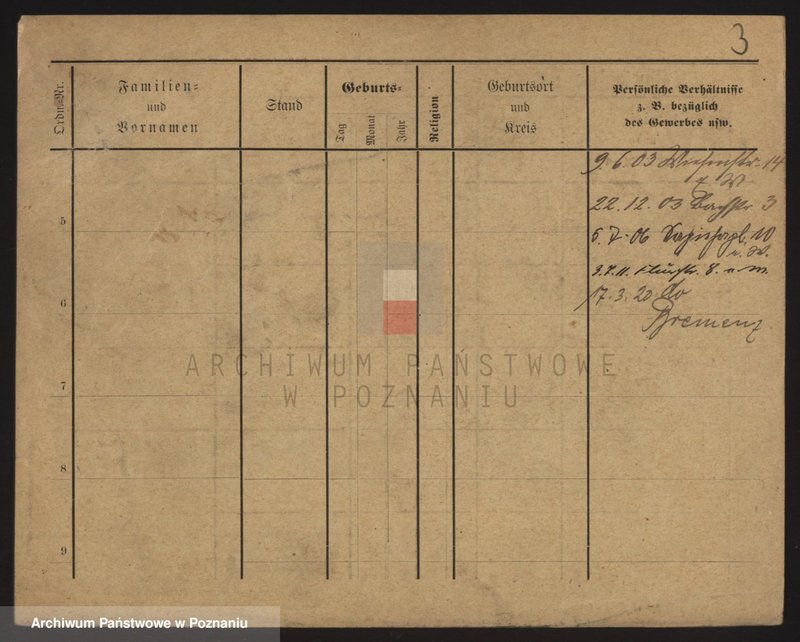 3
Ordn.-Nr.
Familien-
und
Vornamen
Stand
Geburts-
Tag
Monat
Jahr
Religion
Geburtsort
und
Kreis
Persönliche Verhältnisse
z. B. bezüglich
des Gewerbes usw.
9.6.03 Wiesenstr. 14
22.12.03 Bachstr. 3
5
5.7.06 10
8. u. M.
6
17.3.20
Bremen
ARCHIWUM PAŃSTWOWE
W POZNANIU
7
8
9
Archiwum Państwowe w Poznaniu